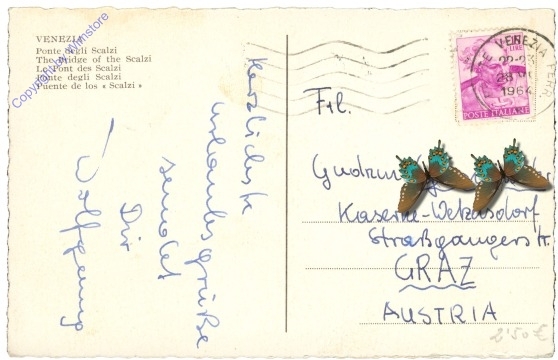 VENEZIA
Ponte degli Scalzi
The Bridge of the Scalzi
Le Pont des Scalzi
Ponte degli Scalzi
Puente de los « Scalzi »
Copyright by Ansichtskartenstore
Herzlichste
Urlaubsgrüße
sendet
Dir
Wolfgang
VENEZIA
LIRE
1964
POSTE ITALIANE
Frl.
Gudrun
Kaserne-Wetzelsdorf
Straßgangerstr
GRAZ
AUSTRIA
2'50 €